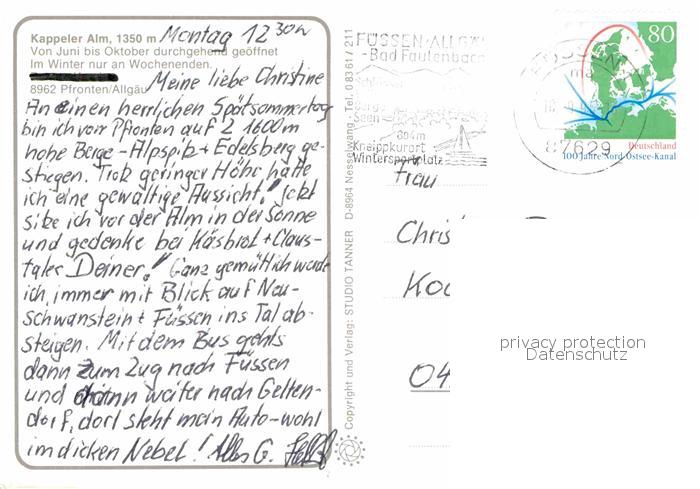 Kappeler Alm, 1350 m Montag 12 30h
Von Juni bis Oktober durchgehend geöffnet
Im Winter nur an Wochenenden.
8962 Pfronten/Allgäu
Meine liebe Christine
An einen herrlichen Spätsommertag
bin ich von Pfronten auf 2 1600m
hohe Berge - Alpspitz + Edelsberg ge-
stiegen. Trotz geringer Höhe hatte
ich eine gewaltige Aussicht! Jetzt
sitze ich vor der Alm in der Sonne
und gedenke bei Käsbrot + Claus-
taler Deiner! Ganz gemütlich werde
ich immer mit Blick auf Neu-
schwanstein + Füssen ins Tal ab-
steigen. Mit dem Bus gehts
dann zum Zug nach Füssen
und dann weiter nach Gelten-
dorf, dort steht mein Auto - wohl
im dicken Nebel! Alles G.
Copyright und Verlag: STUDIO TANNER D-8964 Nesselwang - Tel. 08361 / 211
FÜSSEN-ALLGÄU
-Bad Faulenbach
Seen
804m
Kneippkurort
Wintersportplatz
87629
80
Deutschland
100 Jahre Nord-Ostsee-Kanal
Frau
Chris
Ko
04
privacy protection
Datenschutz